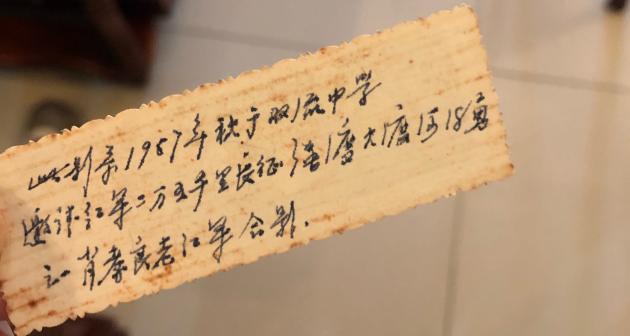 此影系1957年秋于双流中学
邀请红军二万五千里长征强渡大渡河18勇
士肖良老红军合影.